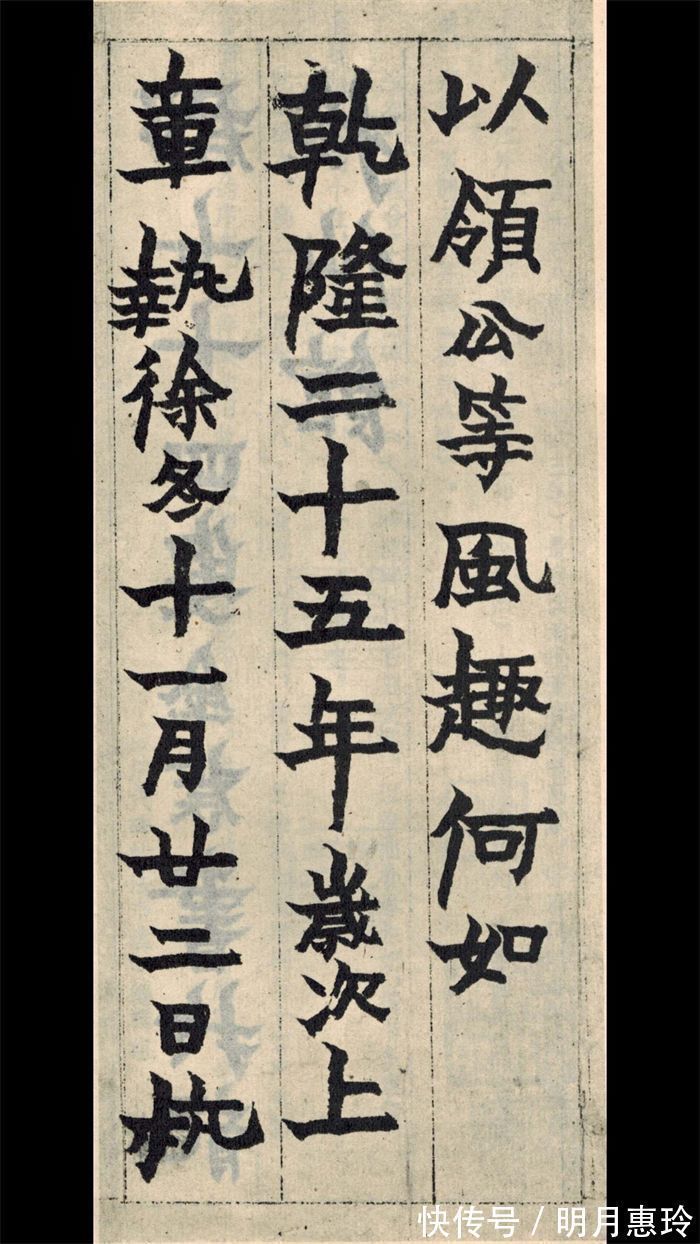 以領公等風趣何如
乾隆二十五年歲次上
章執徐冬十一月廿二日执
快传号/明月惠玲